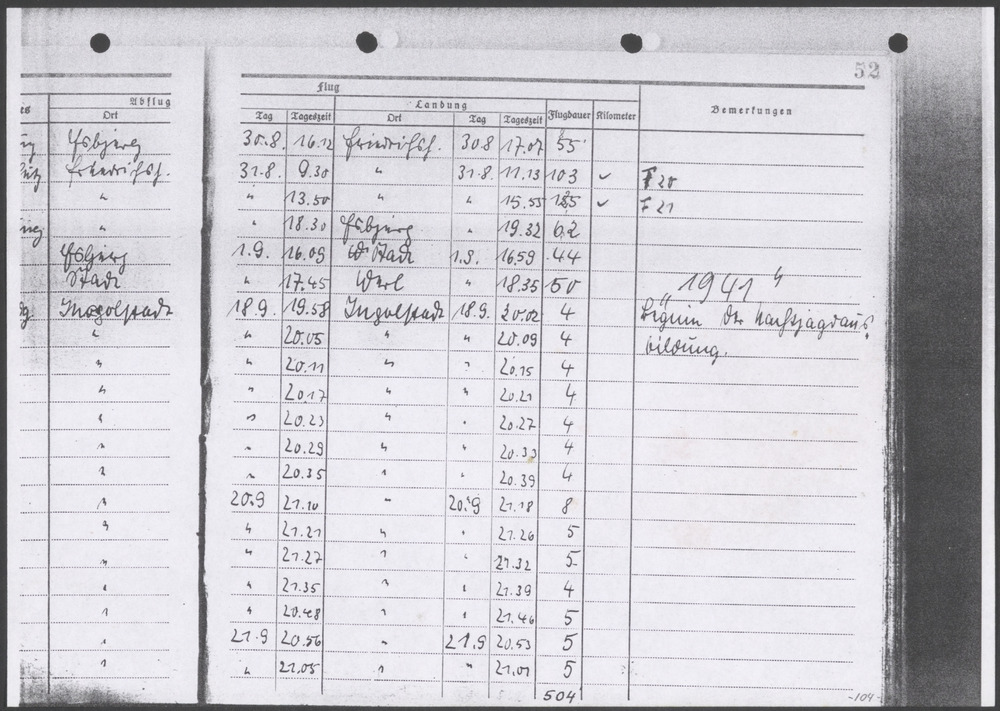 52
Flug
Abflug Landung Bemerkungen
Ort Tag Tageszeit Ort Tag Tageszeit Flugdauer Kilometer
Esbjerg 30.8. 16.12 Friedrichsh. 30.8 17.07 55
Friedrichsh. 31.8. 9.30 " 31.8. 11.13 103 ✓ F 20
" " 13.50 " " 15.55 125 ✓ F 21
" " 18.30 Esbjerg " 19.32 62
Esbjerg 1.9. 16.09 Stade 1.9. 16.59 44
Stade " 17.45 Werl " 18.35 50 "1941"
Ingolstadt 18.9. 19.58 Ingolstadt 18.9. 20.02 4 Beginn der Nachtjagdaus-
" " 20.05 " " 20.09 4 bildung.
" " 20.11 " " 20.15 4
" " 20.17 " " 20.21 4
" " 20.23 " " 20.27 4
" " 20.29 " " 20.33 4
" " 20.35 " " 20.39 4
" 20.9 21.10 " 20.9 21.18 8
" " 21.21 " " 21.26 5
" " 21.27 " " 21.32 5
" " 21.35 " " 21.39 4
" " 20.48 " " 21.46 5
" 21.9 20.56 " 21.9 20.53 5
" " 21.05 " " 21.01 5
504
-104-